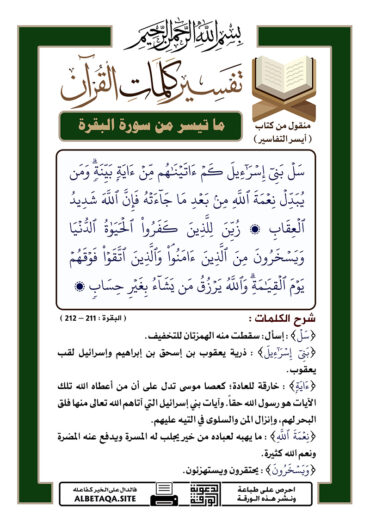 بسم الله الرحمن الرحيم
تفسير كلمات القرآن
ما تيسر من سورة البقرة
منقول من كتاب
( أيسر التفاسير )
سَلْ بَنِىٓ إِسْرَٰٓءِيلَ كَمْ ءَاتَيْنَـٰهُم مِّنْ ءَايَةٍۭ بَيِّنَةٍۢ ۗ وَمَن
يُبَدِّلْ نِعْمَةَ ٱللَّهِ مِنۢ بَعْدِ مَا جَآءَتْهُ فَإِنَّ ٱللَّهَ شَدِيدُ
ٱلْعِقَابِ ۞ زُيِّنَ لِلَّذِينَ كَفَرُوا۟ ٱلْحَيَوٰةُ ٱلدُّنْيَا
وَيَسْخَرُونَ مِنَ ٱلَّذِينَ ءَامَنُوا۟ ۘ وَٱلَّذِينَ ٱتَّقَوْا۟ فَوْقَهُمْ
يَوْمَ ٱلْقِيَـٰمَةِ ۗ وَٱللَّهُ يَرْزُقُ مَن يَشَآءُ بِغَيْرِ حِسَابٍۢ ۞
شرح الكلمات :
( البقرة : 211 – 212 )
﴿سَلْ﴾ : إسأل: سقطت منه الهمزتان للتخفيف.
﴿بَنِىٓ إِسْرَٰٓءِيلَ﴾ : ذرية يعقوب بن إسحق بن إبراهيم وإسرائيل لقب
يعقوب.
﴿ءَايَةٍ﴾ : خارقة للعادة؛ كعصا موسى تدل على أن من أعطاه الله تلك
الآيات هو رسول الله حقاً. وآيات بني إسرائيل التي آتاهم الله تعالى منها فلق
البحر لهم، وإنزال المن والسلوى في التيه عليهم.
﴿نِعْمَةَ ٱللَّهِ﴾ : ما يهبه لعباده من خير يجلب له المسرة ويدفع عنه المضرة
ونعم الله كثيرة.
﴿وَيَسْخَرُونَ﴾ : يحتقرون ويستهزئون.
احرص على طباعة
ونشر هذه الورقة
الدعوية
الورقة
فالدال على الخير كفاعله
ALBETAQA.SITE